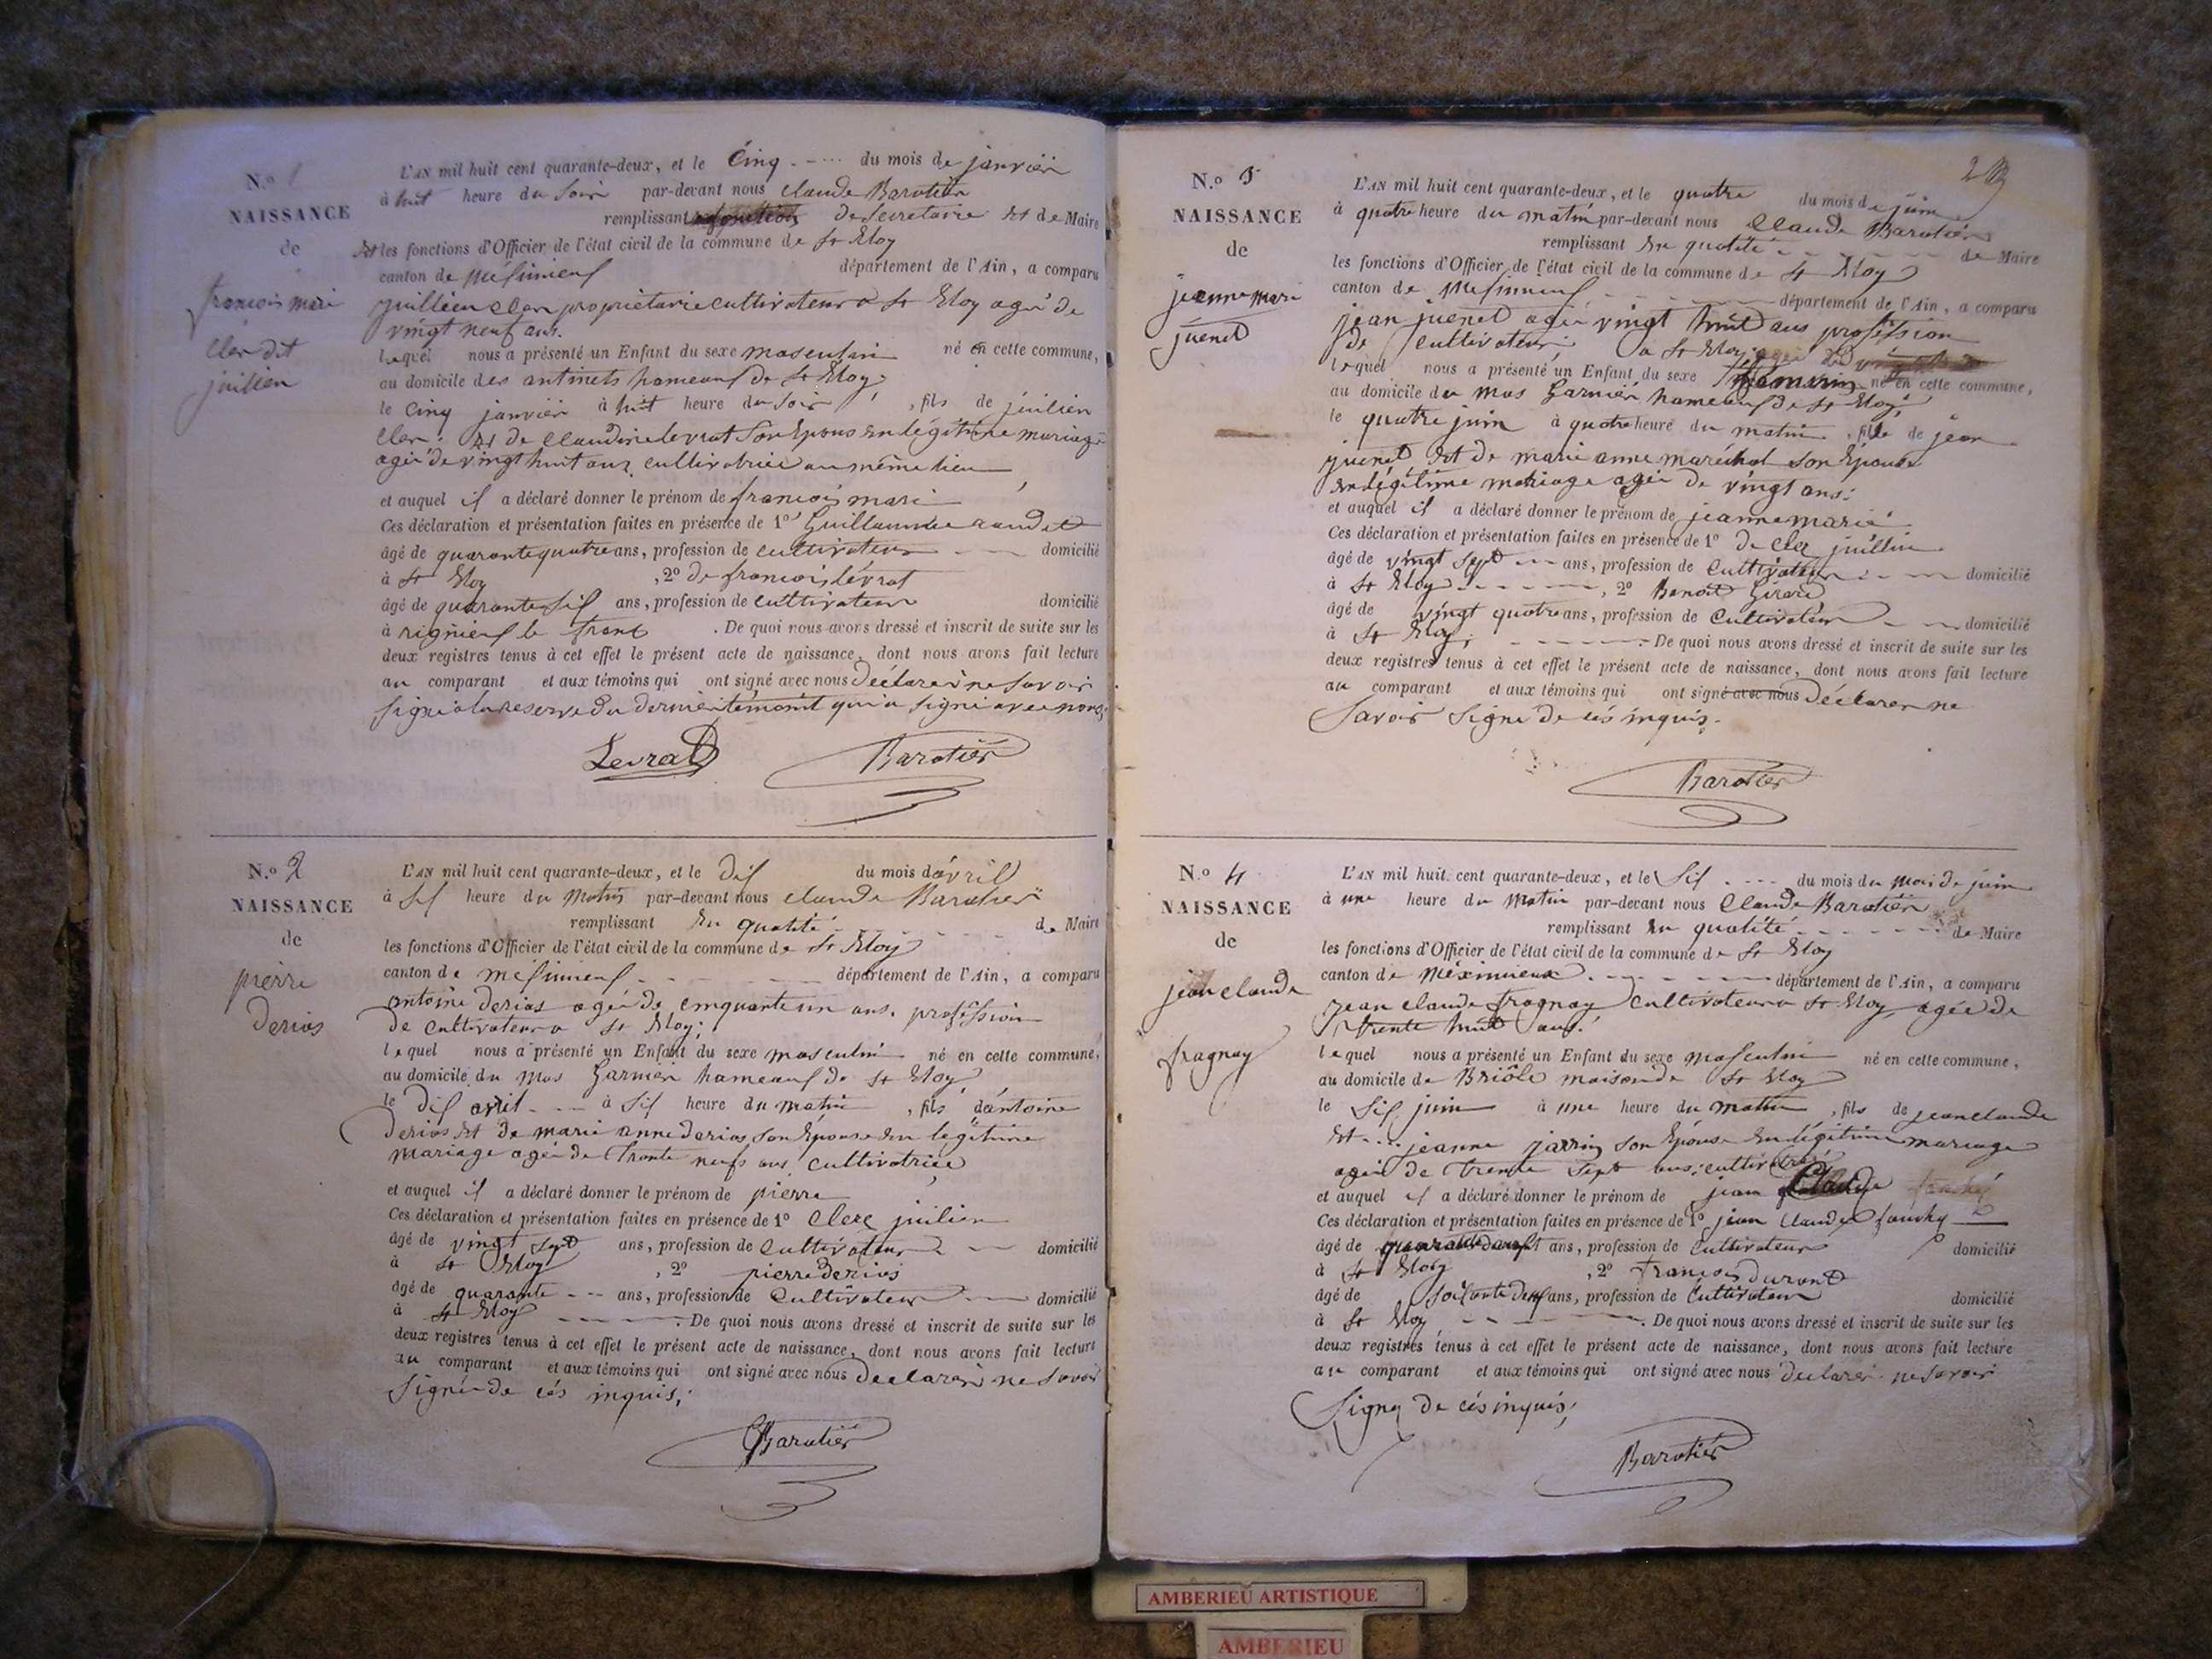 N.º 1
NAISSANCE
de
francois mari
Cler dit
juilien
L'AN mil huit cent quarante-deux, et le Cinq du mois de janvier
à huit heure du Soir par-devant nous Claude Baratier
remplissant de Secretaire et de Maire
les fonctions d'Officier de l'état civil de la commune de St Eloy
canton de département de l'Ain, a comparu
juillien Cler propriétaire cultivateur a St Eloy agé de
vingt neuf ans.
lequel nous a présenté un Enfant du sexe masculin né en cette commune,
au domicile des hameaux de St Eloy,
le Cinq janvier à huit heure du Soir, fils de juilien
Cler: et de Claudine levrat Son Epous en légitime mariage
agée de vingt huit ans cultivatrice au même lieu
et auquel il a déclaré donner le prénom de francois mari
Ces déclaration et présentation faites en présence de 1º Guillaume
âgé de quarante quatre ans, profession de cultivateur domicilié
à St Eloy, 2º de francois lévrat
âgé de quarante six ans, profession de cultivateur domicilié
à rignieux le franc. De quoi nous avons dressé et inscrit de suite sur les
deux registres tenus à cet effet le présent acte de naissance, dont nous avons fait lecture
au comparant et aux témoins qui ont signé avec nous Déclarer ne Savoir
signé a la reserve du dernier témoint qui a signé avec nous,
Levrat Baratier
N.º 2
NAISSANCE
de
pierre
Derias
L'AN mil huit cent quarante-deux, et le Dix du mois d'avril
à Six heure du Matin par-devant nous Claude Baratier
remplissant En qualité de Maire
les fonctions d'Officier de l'état civil de la commune de St Eloy
canton de département de l'Ain, a comparu
antoine Derias agé de Cinquante un ans. profession
de cultivateur a St Eloy:
lequel nous a présenté un Enfant du sexe masculin né en cette commune,
au domicile du Mas Garnier hameaux de St Eloy,
le Dix avril à Six heure du matin, fils d'antoine
Derias et de marie anne Derias son Epouse en legitime
mariage agée de trente neuf ans cultivatrice
et auquel il a déclaré donner le prénom de pierre
Ces déclaration et présentation faites en présence de 1º Clerc juilien
âgé de vingt sept ans, profession de Cultivateur domicilié
à St Eloy, 2º pierre Derias
âgé de quarante ans, profession de Cultivateur domicilié
à St Eloy. De quoi nous avons dressé et inscrit de suite sur les
deux registres tenus à cet effet le présent acte de naissance, dont nous avons fait lecture
au comparant et aux témoins qui ont signé avec nous Declarer ne Savoir
Signé de cés inquis;
Baratier
N.º 3
NAISSANCE
de
jeanne mari
juenet
L'AN mil huit cent quarante-deux, et le quatre du mois de juin
à quatre heure du matin par-devant nous Claude Baratier
remplissant En qualité de Maire
les fonctions d'Officier de l'état civil de la commune de St Eloy
canton de département de l'Ain, a comparu
jean juenet agé vingt huit ans profession
de cultivateur, a St Eloy
lequel nous a présenté un Enfant du sexe feminin né en cette commune,
au domicile du mas Garnier hameaux de St Eloy,
le quatre juin à quatre heure du matin, fille de jean
juenet Et de marie anne maréchal son Epouse
En légitime mariage agée de vingt ans:
et auquel il a déclaré donner le prénom de jeanne marie
Ces déclaration et présentation faites en présence de 1º de Cler juillin
âgé de vingt sept ans, profession de Cultivateur domicilié
à St Eloy, 2º Benoit Girard
âgé de vingt quatre ans, profession de Cultivateur domicilié
à St Eloy. De quoi nous avons dressé et inscrit de suite sur les
deux registres tenus à cet effet le présent acte de naissance, dont nous avons fait lecture
au comparant et aux témoins qui ont signé avec nous Déclarer ne
Savoir Signé de cés inquis.
Baratier
N.º 4
NAISSANCE
de
jean claude
fragnay
L'AN mil huit cent quarante-deux, et le Six du mois du mois de juin
à une heure du Matin par-devant nous Claude Baratier
remplissant En qualité de Maire
les fonctions d'Officier de l'état civil de la commune de St Eloy
canton de Méximieux département de l'Ain, a comparu
jean claude fragnay Cultivateur a St Eloy agée de
trente huit ans.
lequel nous a présenté un Enfant du sexe masculin né en cette commune,
au domicile de Briôle maison de St Eloy
le Six juin à une heure du matin, fils de jean claude
Et jeanne jarrin son Epouse En légitime mariage
agée de trente sept ans: cultivatrice
et auquel il a déclaré donner le prénom de jean Claude
Ces déclaration et présentation faites en présence de 1º jean Claude
âgé de ans, profession de Cultivateur domicilié
à St Eloy, 2º francois Durant
âgé de ans, profession de Cultivateur domicilié
à St Eloy. De quoi nous avons dressé et inscrit de suite sur les
deux registres tenus à cet effet le présent acte de naissance, dont nous avons fait lecture
au comparant et aux témoins qui ont signé avec nous Declarer ne Savoir
Signé de cés inquis;
Baratier
AMBERIEU ARTISTIQUE
AMBERIEU